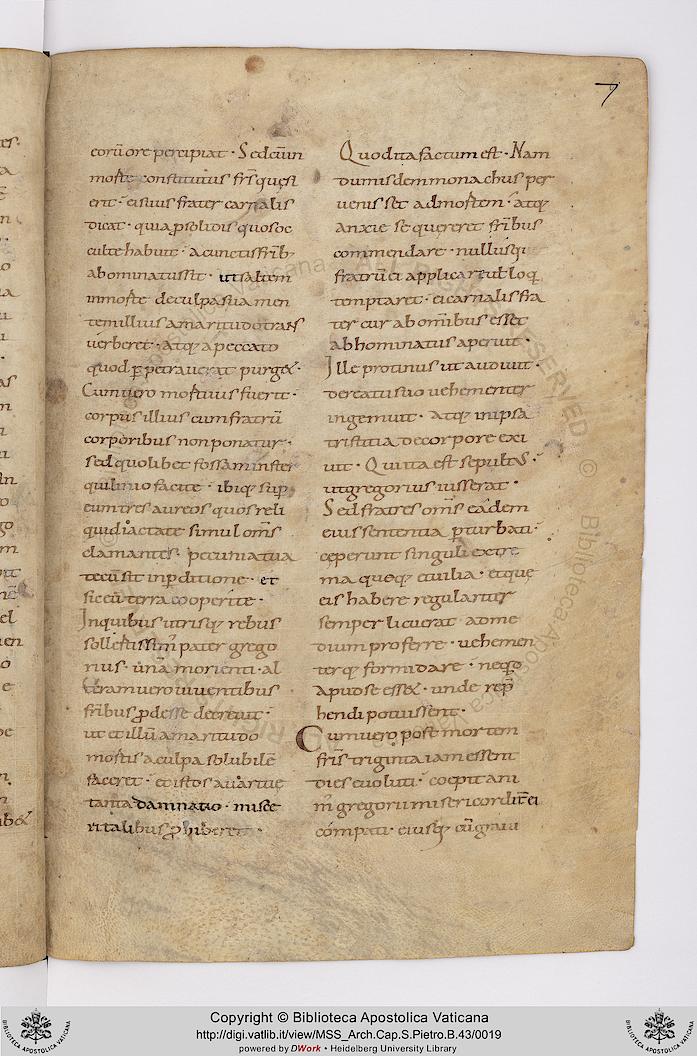 7
corū ore percipiat · Sed cū in
morte constitutus fr̄s quesi
erit · ei suus frater carnalis
dicat · quia p solidos quos oc
culte habuit · a cunctis frīb;
abominatus sit · ut saltem
in morte de culpa sua men
tem illius amaritudo trans
verberet · atq; a peccato
quod ꝑpetraverat purget ·
Cum vero mortuus fuerit ·
corpus illius cum fratrū
corporibus non ponatur ·
sed quolibet fossam in ster
quilinio facite · ibiq; sup
eum tres aureos quos reli
quid iactate simul om̄s
clamantes · pecunia tua
tecū sit in pditione · et
sic eū terra cooperite ·
In quibus utrisq; rebus
sollertissim̄ pater grego
rius · unā morienti · al
teram vero viventibus
frībus ꝓdesse decrevit ·
ut et illū amaritudo
mortis a culpa solubilē
faceret · et istos avaritię
tanta damnatio · misce
ri talibus ꝓhiberet ·
Quod ita factum est · Nam
dum isdem monachus per
venisset ad mortem · atq;
anxie se quereret frībus
commendare · nullusque
fratrū ei applicare ut loq
temptaret · ei carnalis fra
ter cur ab omībus esset
abhominatus aperuit ·
Ille protinus ut audivit ·
de reatu suo vehementer
ingemuit · atq; in ipsa
tristitia de corpore exi
vit · Qui ita est sepultus ·
ut gregorius iusserat ·
Sed fratres om̄s eadem
eius sententia ꝑturbati ·
ceperunt singuli extre
ma queq; et vilia · et quę
eis habere regulariter
semper licuerat ad me
dium proferre · vehemen
terq; formidare · ne qđ
apud se esset · unde rep̄
hendi potuissent ·
Cum vero post mortem
fr̄is triginta iam essent
dies evoluti · coepit ani
m̄ gregorii misericordit̄ ei
compati · eiusq; cū gravi
Copyright © Biblioteca Apostolica Vaticana
http://digi.vatlib.it/view/MSS_Arch.Cap.S.Pietro.B.43/0019
powered by DWork • Heidelberg University Library